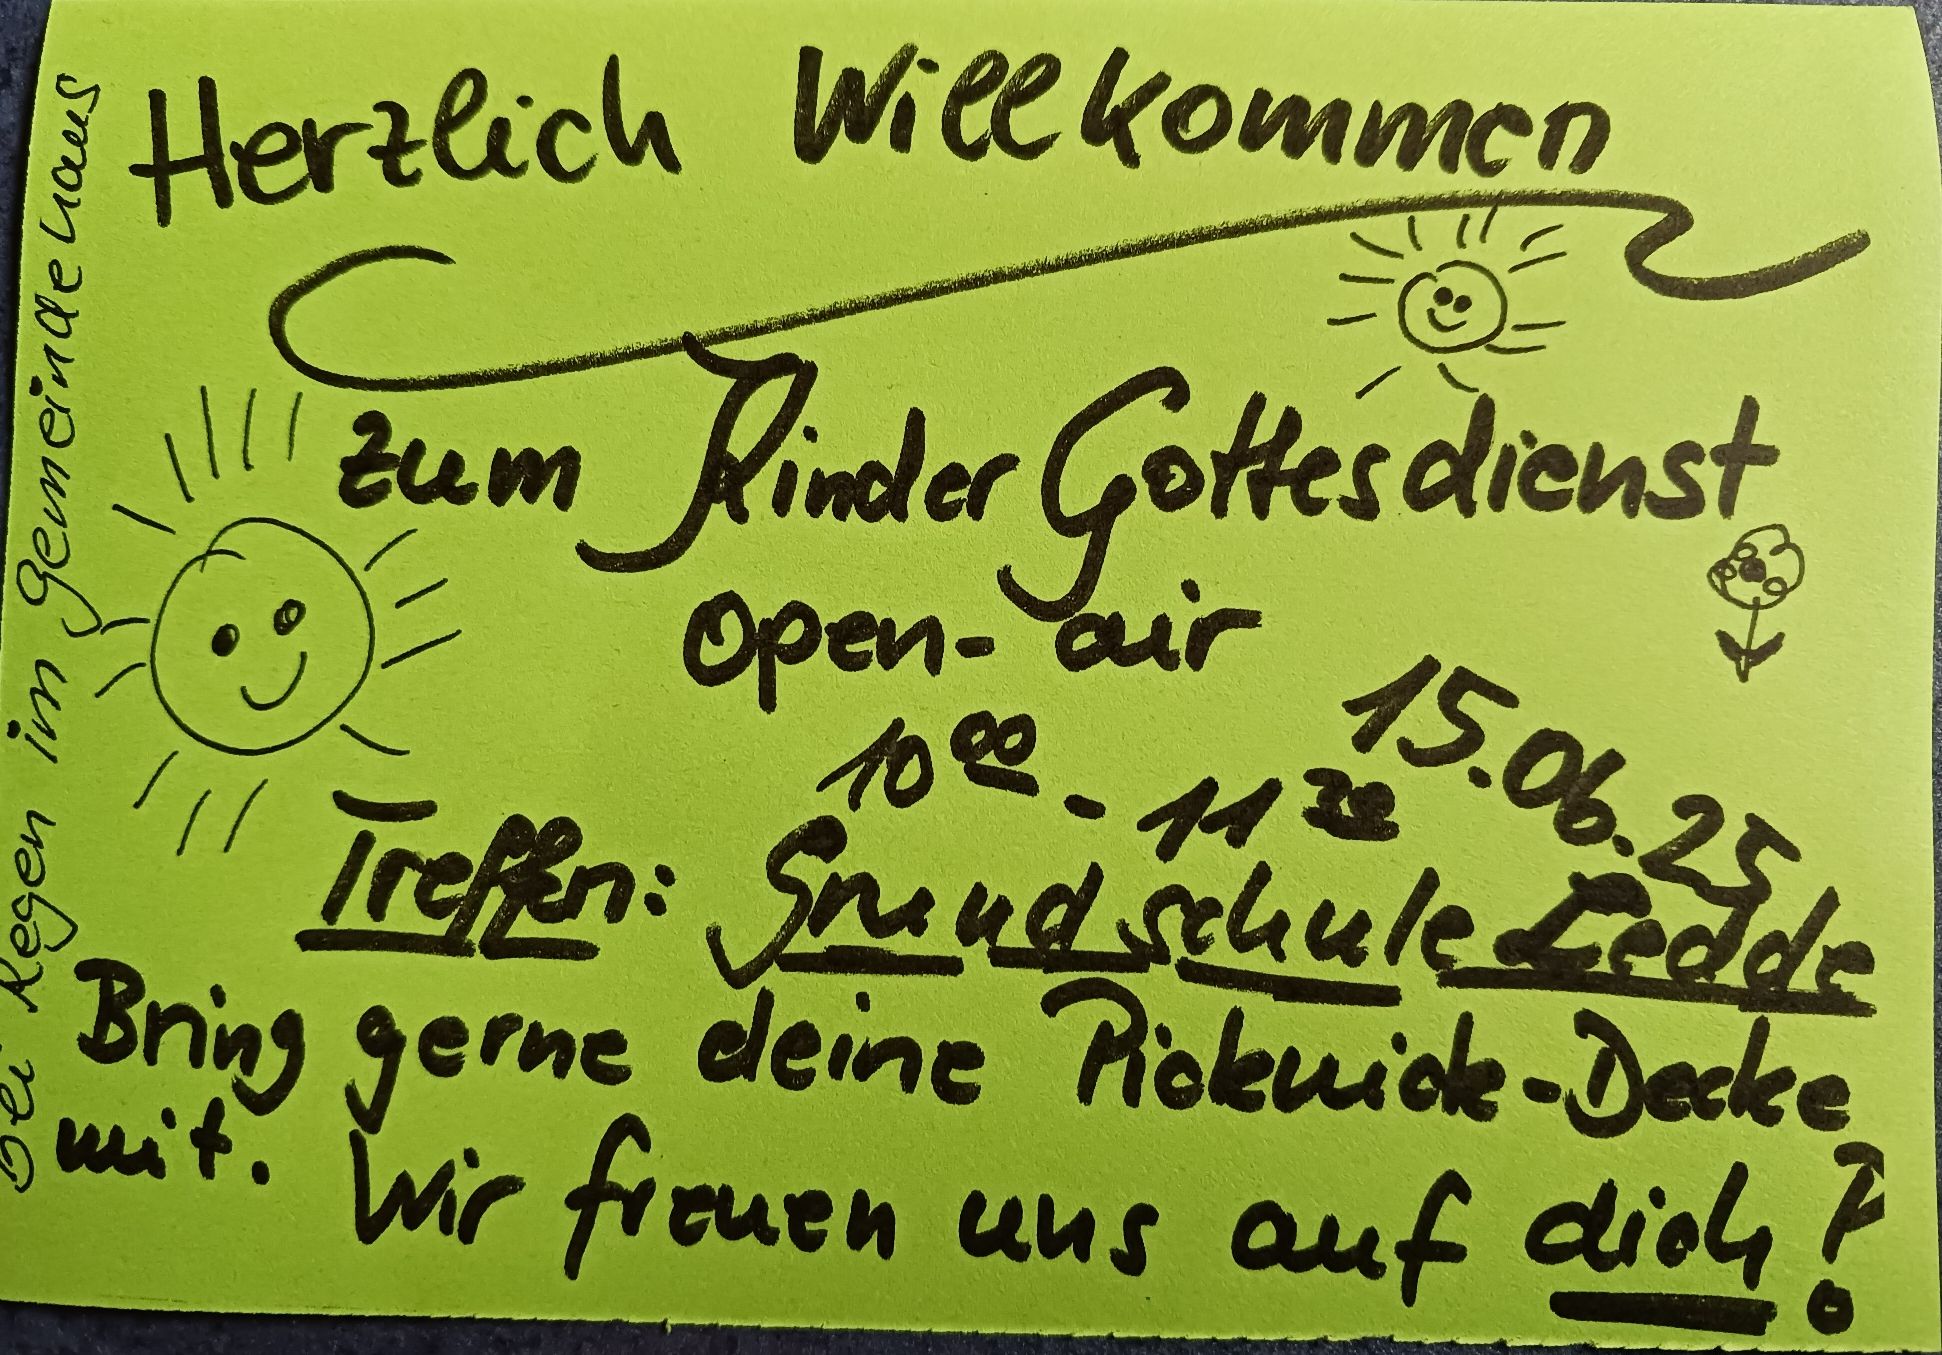 Herzlich Willkommen
zum KinderGottesdienst
open-air
15.06.25
10⁰⁰ - 11³⁰
Treffen: Grundschule Ledde
Bring gerne deine Picknick-Decke
mit. Wir freuen uns auf dich!
Bei Regen im Gemeindehaus